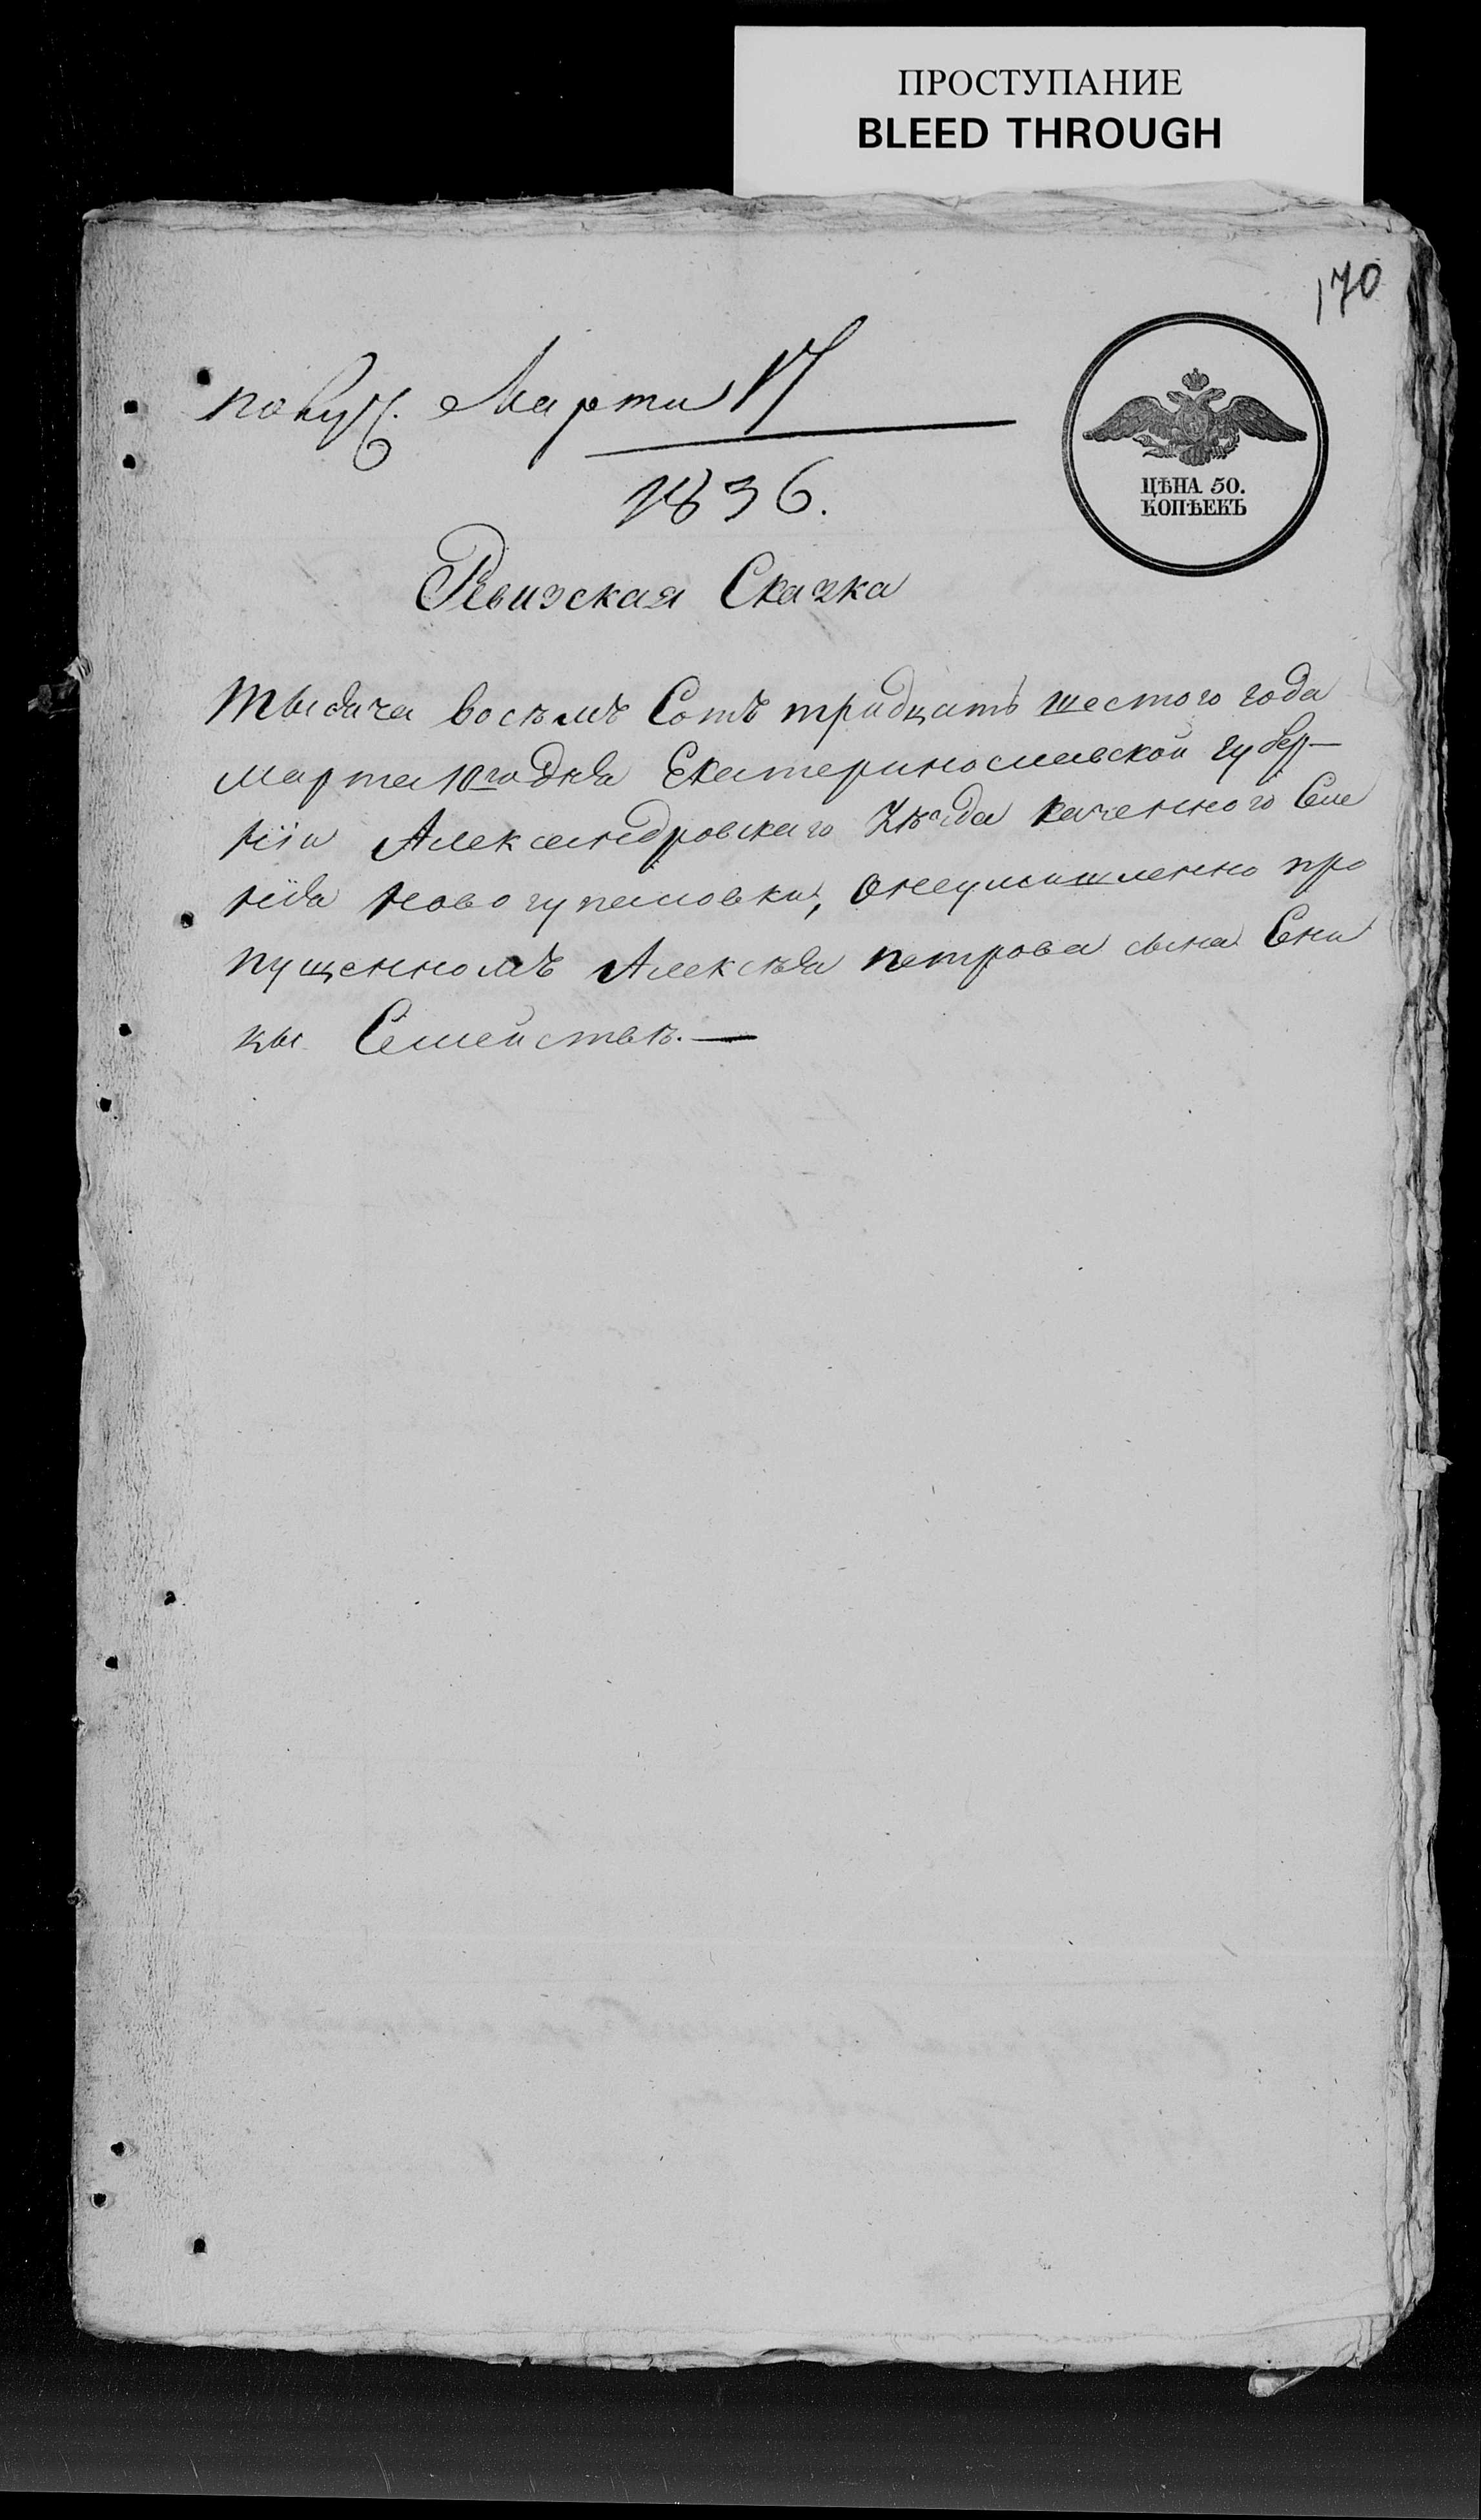 ПРОСТУПАНИЕ
BLEED THROUGH
170
Марта 17
1836.
ЦѢНА 50.
КОПѢЕКЪ
Ревизская Сказка
Тысяча восѣмъ Сотъ тридцать шестого года
марта 10го дня Екатеринославской губер-
нїи Александровскаго Уѣзда казенного Селе
нїя новогупаловки, онеумышленно про
пущенномъ Алексѣя петрова сына Сни
цы Семействѣ.—